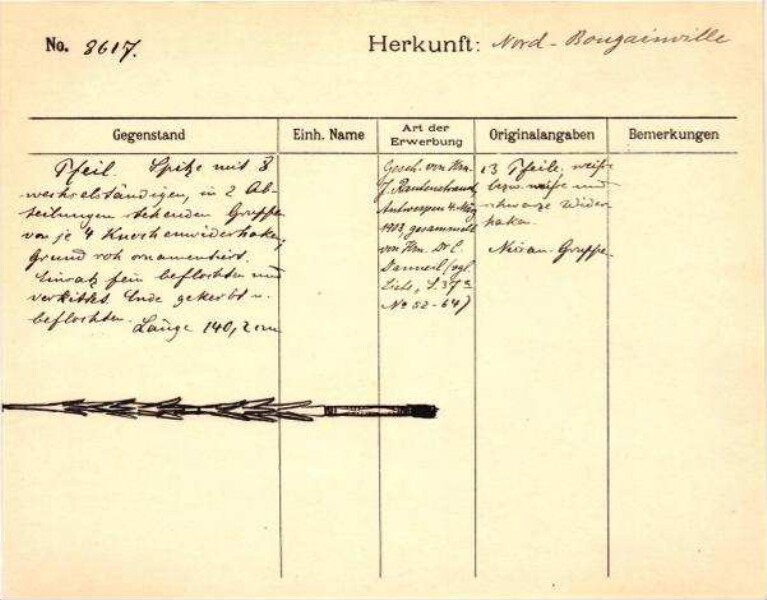 No. 8617.
Herkunft: Nord-Bougainville
Gegenstand
Einh. Name
Art der
Erwerbung
Originalangaben
Bemerkungen
Pfeil. Spitze mit 8
wechselständigen, in 2 Ab-
teilungen stehenden Gruppen
von je 4 Knochenwiderhaken;
Grund rot ornamentiert.
Einsatz fein beflochten und
verkittet. Ende gekerbt u.
beflochten.
Länge 140,2 cm
Gesch. von Hrn.
J. Rautenstrauch,
Antwerpen 4. März
1903, gesammelt
von Hrn. Dr. C.
Danneil (vgl.
Liste, S. 37
No 52-64)
13 Pfeile, weiße
bezw. weiße und
schwarze Wider-
haken.
Nissan-Gruppe.